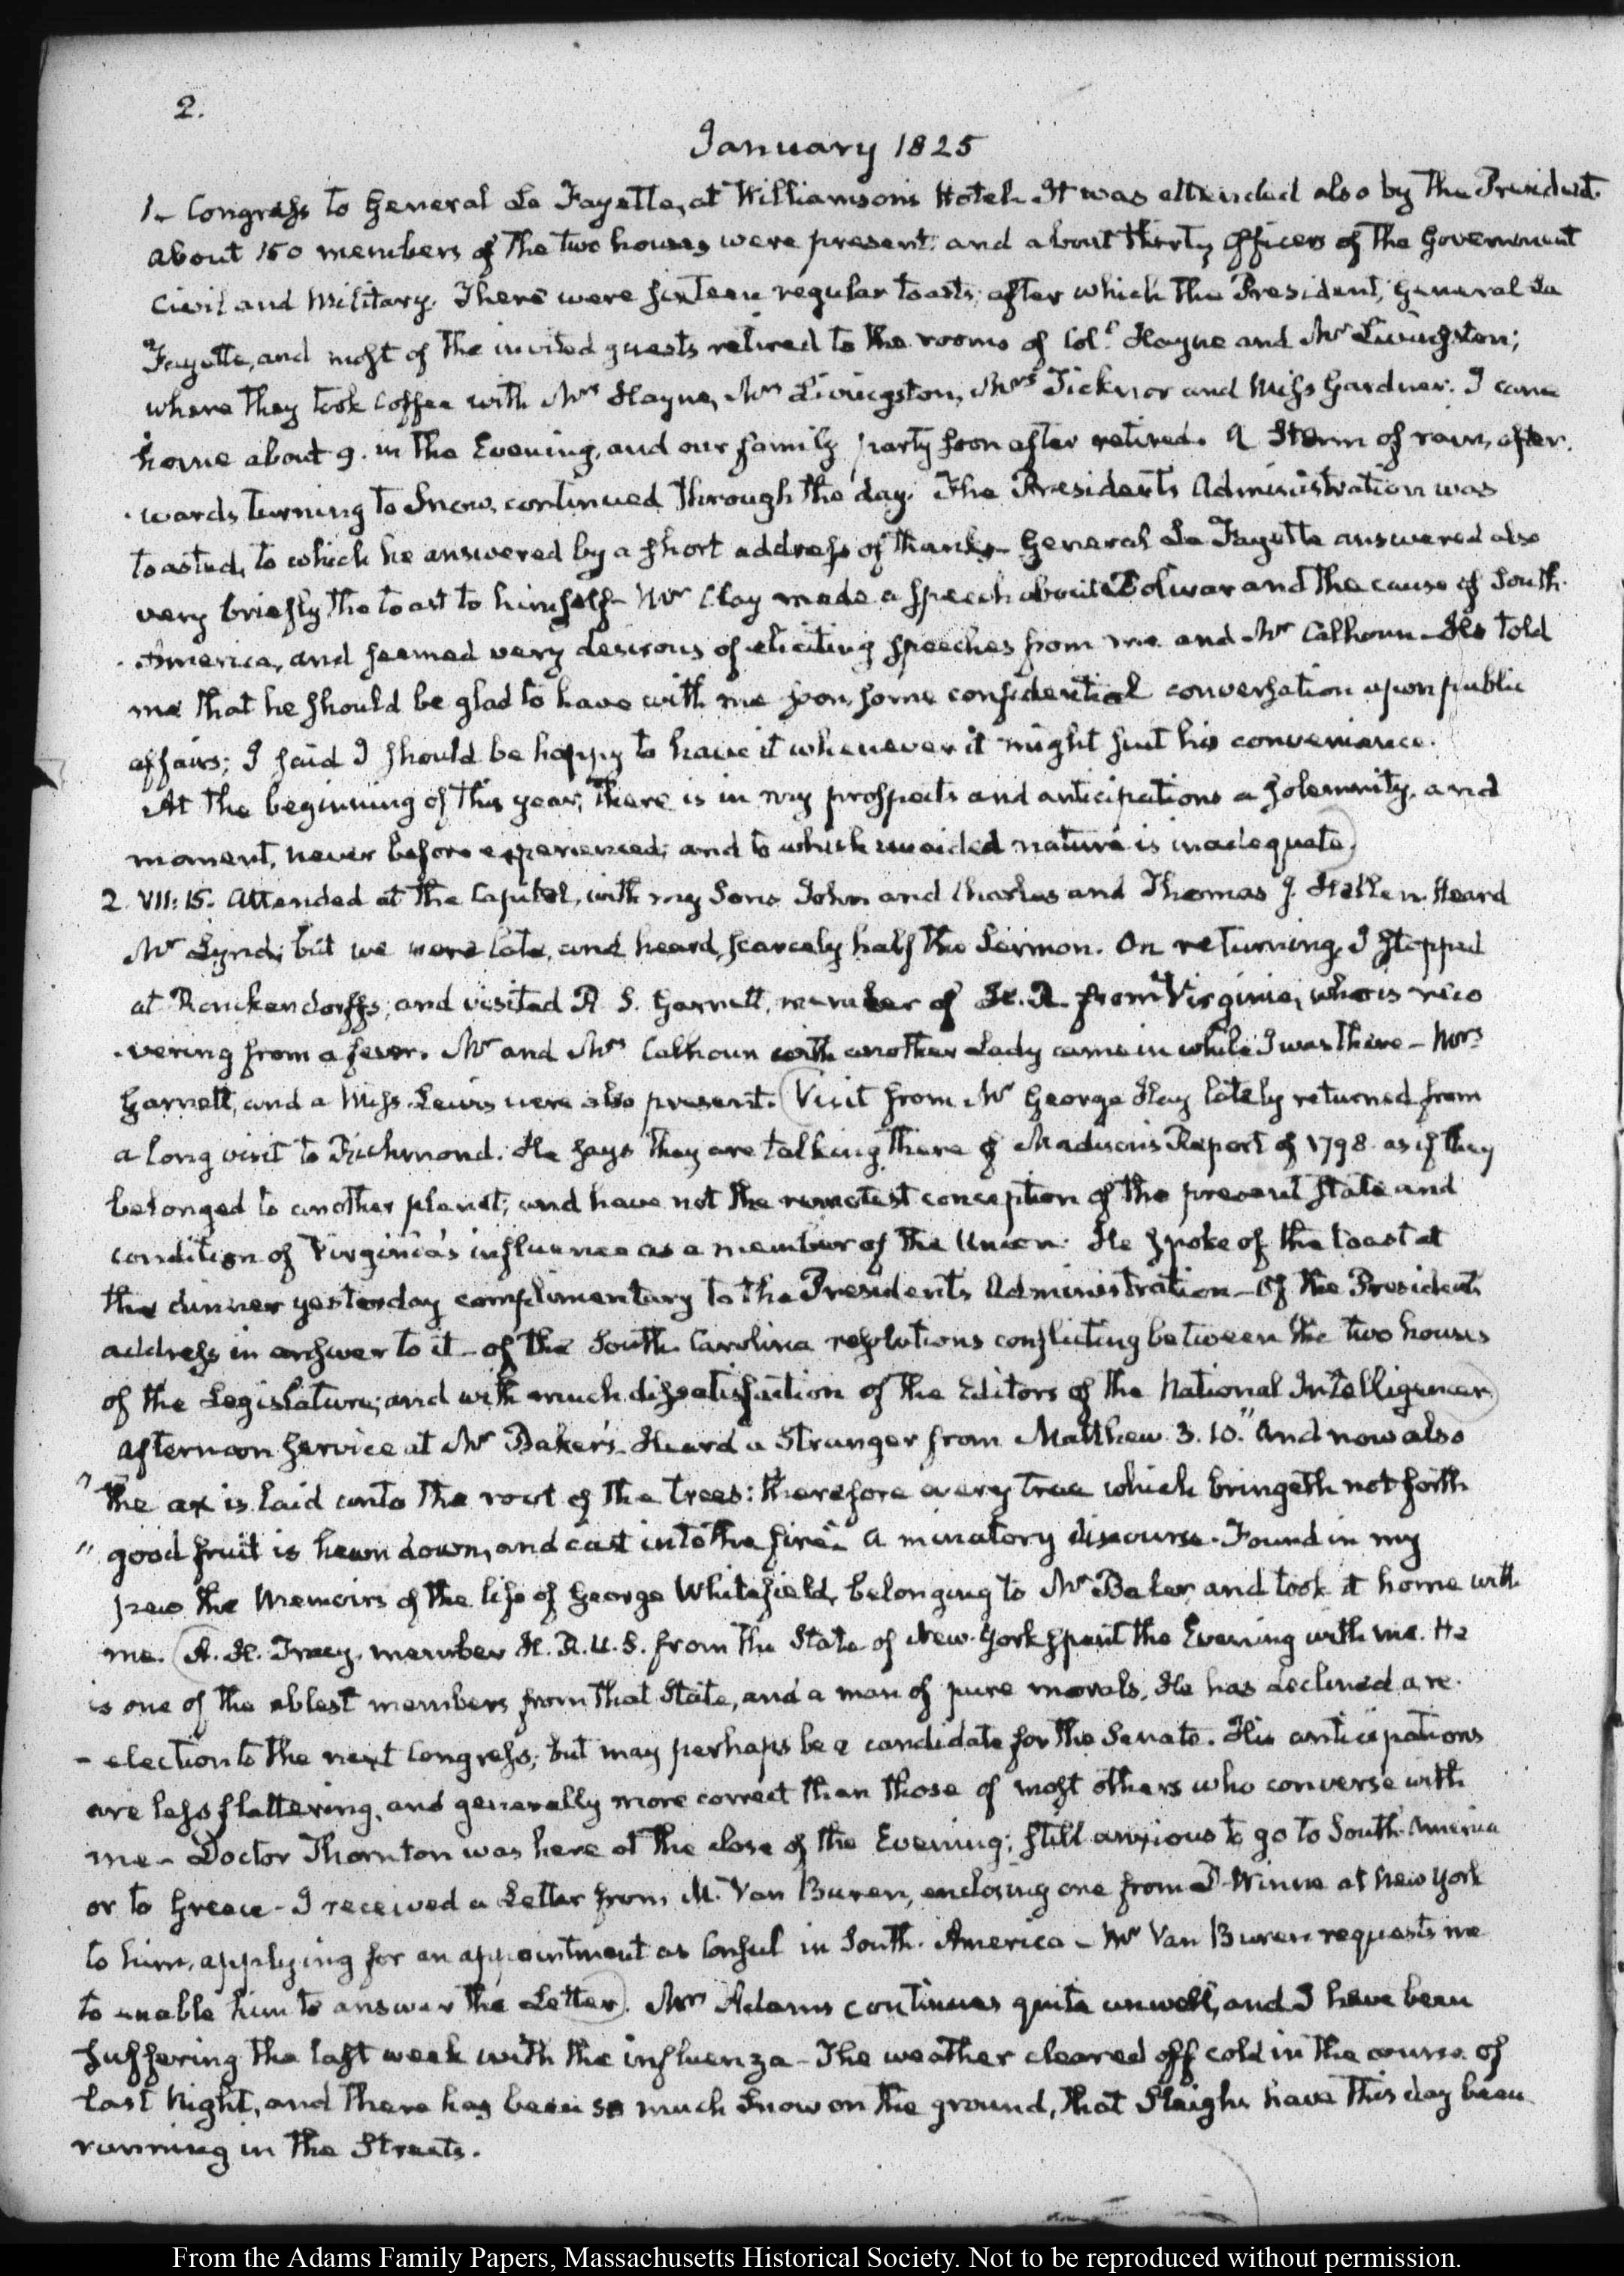 2.
January 1825
1. Congress to General La Fayette, at Williamson's Hotel. It was attended also by the President.
about 150 members of the two houses were present: and about thirty officers of the Government
Civil and Military. There were sixteen regular toasts; after which the President, General La
Fayette, and most of the invited guests retired to the rooms of Col.l Hayne and Mr Livingston;
where they took Coffee with Mrs Hayne, Mrs Livingston, Mrs Ticknor and Miss Gardner. I came
home about 9. in the Evening, and our family party soon after retired. A Storm of rain, after-
-wards turning to Snow, continued through the day. The President's Administration was
toasted, to which he answered by a short address of thanks— General La Fayette answered also
very briefly the toast to himself— Mr Clay made a speech about Bolivar and the cause of South-
-America, and seemed very desirous of eliciting speeches from me and Mr Calhoun— He told
me that he should be glad to have with me soon some confidential conversation upon public
affairs; I said I should be happy to have it whenever it might suit his convenience.
At the beginning of this year, there is in my prospects and anticipations a solemnity, and
moment, never before experienced; and to which unaided nature is inadequate.)
2. VII:15. Attended at the Capitol, with my Sons John and Charles and Thomas J. Hellen. Heard
Mr Lynd; but we were late, and heard scarcely half the Sermon. On returning, I stopped
at Renckendorffs; and visited R. S. Garnett, member of H. R. from Virginia, who is reco
-vering from a fever. Mr and Mrs Calhoun with another Lady came in while I was there— Mrs
Garnett, and a Miss Lewis were also present. (Visit from Mr George Hay lately returned from
a long visit to Richmond. He says they are talking there of Madison's Report of 1798 as if they
belonged to another planet; and have not the remotest conception of the present state and
condition of Virginia's influence as a member of the Union. He spoke of the toast at
the dinner yesterday complimentary to the President's Administration— Of the President's
address in answer to it— of the South Carolina resolutions conflicting between the two houses
of the Legislature; and with much dissatisfaction of the Editors of the National Intelligencer)
Afternoon service at Mr Baker's. Heard a Stranger from Matthew 3. 10. "And now also
"the ax is laid unto the root of the trees: therefore every tree which bringeth not forth
"good fruit is hewn down, and cast into the fire." A minatory discourse. Found in my
pew the Memoirs of the life of George Whitefield, belonging to Mr Baker, and took it home with
me. (A. H. Tracy, member H. R. U. S. from the State of New-York spent the Evening with me. He
is one of the ablest members from that State, and a man of pure morals. He has declined a re-
-election to the next Congress; but may perhaps be a candidate for the Senate. His anticipations
are less flattering, and generally more correct than those of most others who converse with
me— Doctor Thornton was here at the close of the Evening; still anxious to go to South-America
or to Greece— I received a Letter from M. Van Buren, enclosing one from D. Winne at New York
to him, applying for an appointment as Consul in South-America— Mr Van Buren requests me
to enable him to answer the Letter). Mrs Adams continues quite unwell, and I have been
suffering the last week with the influenza— The weather cleared off cold in the course of
last Night, and there has been so much Snow on the ground, that Sleighs have this day been
running in the Streets.
From the Adams Family Papers, Massachusetts Historical Society. Not to be reproduced without permission.